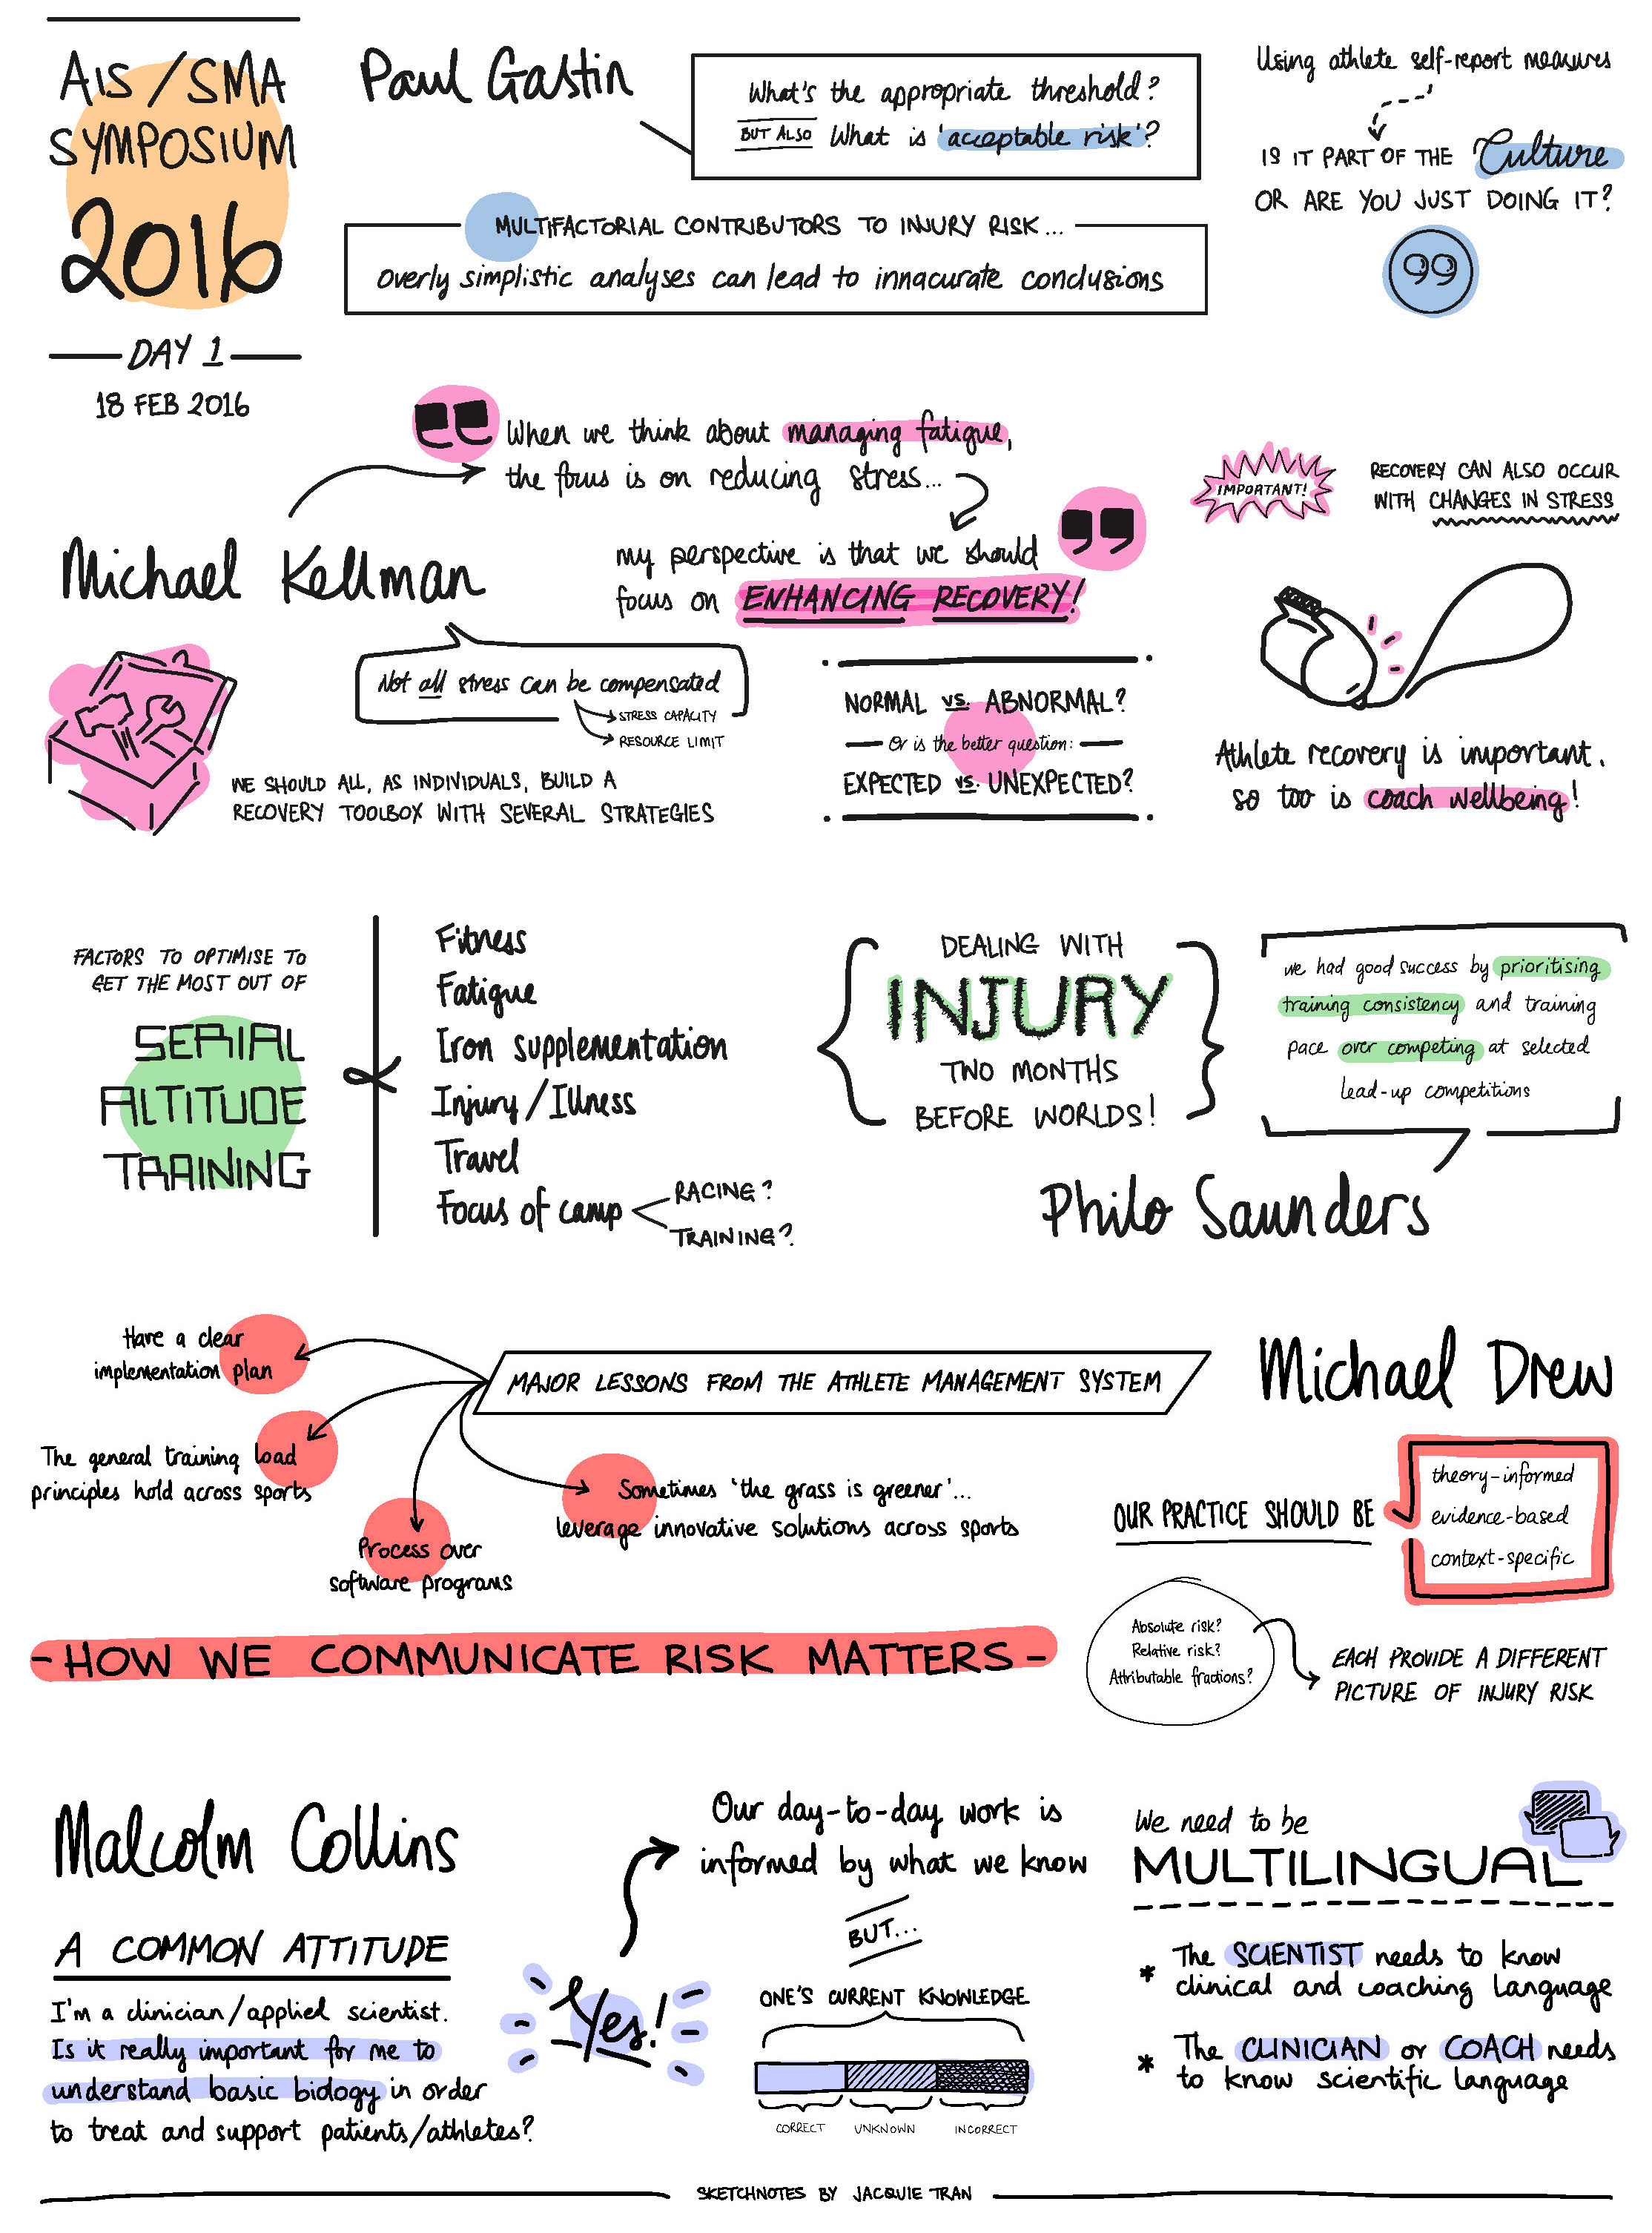 AIS/SMA
SYMPOSIUM
2016
DAY 1
18 FEB 2016
Paul Gastin
What's the appropriate threshold?
BUT ALSO What is 'acceptable risk'?
MULTIFACTORIAL CONTRIBUTORS TO INJURY RISK...
overly simplistic analyses can lead to innacurate conclusions
Using athlete self-report measures
IS IT PART OF THE Culture
OR ARE YOU JUST DOING IT?
Michael Kellman
When we think about managing fatigue,
the focus is on reducing stress...
my perspective is that we should
focus on ENHANCING RECOVERY!
IMPORTANT!
RECOVERY CAN ALSO OCCUR
WITH CHANGES IN STRESS
Not all stress can be compensated
STRESS CAPACITY
RESOURCE LIMIT
WE SHOULD ALL, AS INDIVIDUALS, BUILD A
RECOVERY TOOLBOX WITH SEVERAL STRATEGIES
NORMAL vs. ABNORMAL?
Or is the better question:
EXPECTED vs. UNEXPECTED?
Athlete recovery is important,
so too is coach wellbeing!
FACTORS TO OPTIMISE TO
GET THE MOST OUT OF
SERIAL
ALTITUDE
TRAINING
Fitness
Fatigue
Iron supplementation
Injury/Illness
Travel
Focus of camp
RACING?
TRAINING?
DEALING WITH
INJURY
TWO MONTHS
BEFORE WORLDS!
we had good success by prioritising
training consistency and training
pace over competing at selected
lead-up competitions
Philo Saunders
Michael Drew
MAJOR LESSONS FROM THE ATHLETE MANAGEMENT SYSTEM
Have a clear
implementation plan
The general training load
principles hold across sports
Process over
software programs
Sometimes 'the grass is greener'...
leverage innovative solutions across sports
OUR PRACTICE SHOULD BE
theory-informed
evidence-based
context-specific
- HOW WE COMMUNICATE RISK MATTERS -
Absolute risk?
Relative risk?
Attributable fractions?
EACH PROVIDE A DIFFERENT
PICTURE OF INJURY RISK
Malcolm Collins
A COMMON ATTITUDE
I'm a clinician/applied scientist.
Is it really important for me to
understand basic biology in order
to treat and support patients/athletes?
Yes!
Our day-to-day work is
informed by what we know
BUT...
ONE'S CURRENT KNOWLEDGE
CORRECT UNKNOWN INCORRECT
We need to be
MULTILINGUAL
* The SCIENTIST needs to know
clinical and coaching language
* The CLINICIAN or COACH needs
to know scientific language
SKETCHNOTES BY JACQUIE TRAN